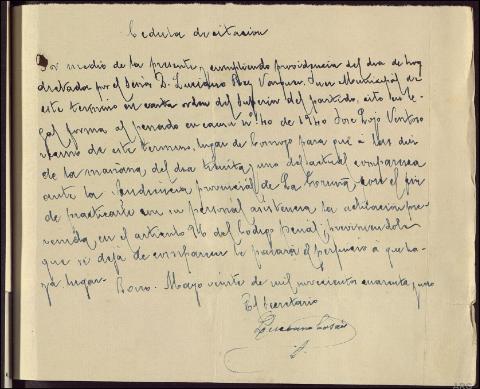 Cedula de citacion
Por medio de la presente y cumpliendo providencia del dia de hoy
dictada por el Señor D. Luciano Rey Vazquez, Juez Municipal de
este termino en carta orden del Superior del partido, cito en le-
gal forma al penado en causa nº 40 de 1940 Jose Rojo Ventoso
vecino de este termino, lugar de para que a las diez
de la mañana del dia treinta y uno del actual comparezca
ante la Audiencia provincial de La Coruña, con el fin
de practicarle con su personal asistencia la pre-
venida en el articulo 96 del Codigo Penal, previniendole
que si deja de comparecer le parará el perjuicio a que ha-
ya lugar.
Mayo veinte de mil novecientos cuarenta y uno
El Secretario